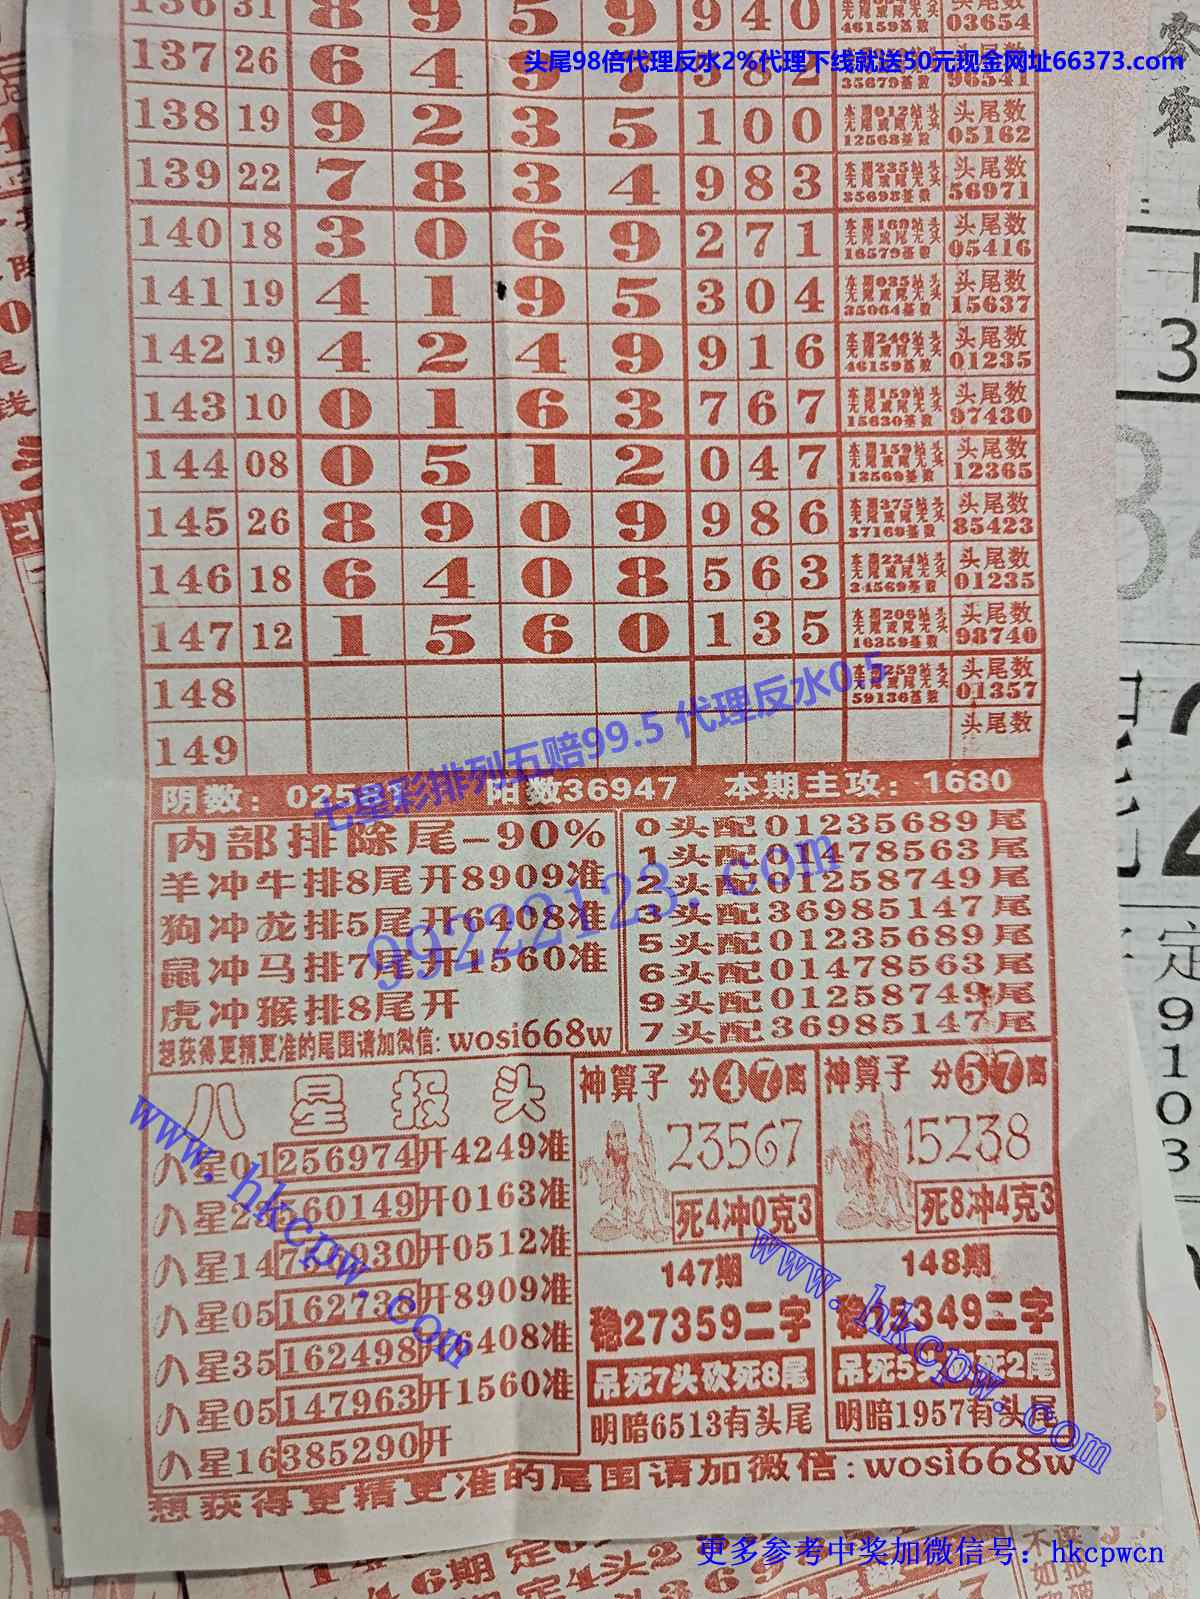 头尾98倍代理反水2%代理下线就送50元现金网址66373.com
136 31 8 9 5 9 9 4 0 46159基数 03654
137 26 6 4 9 7 5 8 2 35679基数 96541
138 19 9 2 3 5 1 0 0 12568基数 头尾数 05162
139 22 7 8 3 4 9 8 3 35698基数 头尾数 56971
140 18 3 0 6 9 2 7 1 16579基数 头尾数 05416
141 19 4 1 9 5 3 0 4 35064基数 头尾数 15637
142 19 4 2 4 9 9 1 6 46159基数 头尾数 01235
143 10 0 1 6 3 7 6 7 15630基数 头尾数 97430
144 08 0 5 1 2 0 4 7 13569基数 头尾数 12365
145 26 8 9 0 9 9 8 6 37169基数 头尾数 85423
146 18 6 4 0 8 5 6 3 34569基数 头尾数 01235
147 12 1 5 6 0 1 3 5 16359基数 头尾数 98740
148 59136基数 头尾数 01357
149 头尾数
七星彩排列五赔99.5 代理反水0.5
阴数: 阳数36947 本期主攻: 1680
内部排除尾-90%
羊冲牛排8尾开8909准
狗冲龙排5尾开6408准
鼠冲马排7尾开1560准
虎冲猴排8尾开
想获得更精更准的尾围请加微信: wosi668w
0头配01235689尾
1头配01478563尾
2头配01258749尾
3头配36985147尾
5头配01235689尾
6头配01478563尾
9头配01258749尾
7头配36985147尾
99222123.com
八星报头
八星01 256974 开4249准
八星2 560149 开0163准
八星14 开0512准
八星05 162738 开8909准
八星35 162498 开6408准
八星05 147963 开1560准
八星16 385290 开
神算子 分47离
23567
死4冲0克3
147期
稳27359二字
吊死7头砍死8尾
明暗6513有头尾
神算子 分57离
15238
死8冲4克3
148期
稳 349二字
吊死5 死2尾
明暗1957有头尾
www.hkcpw.com
www.hkcpw.com
想获得更精更准的尾围请加微信: wosi668w
更多参考中奖加微信号: hkcpwcn